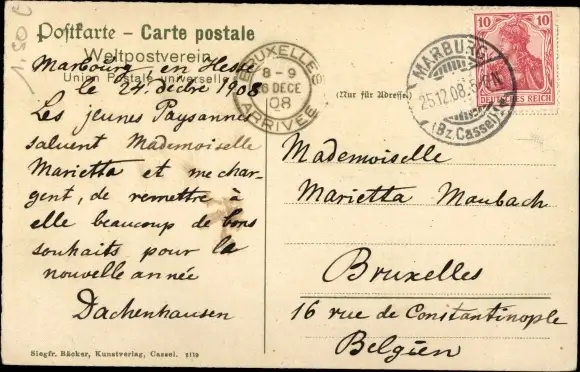 1.50 €
Postkarte – Carte postale
Weltpostverein
Union Postale universelle
Marbourg en Hesse
le 24. décbre 1908
Les jeunes Paysannes
saluent Mademoiselle
Marietta et me char-
gent, de remettre à
elle beaucoup de bons
souhaits pour la
nouvelle année
Dachenhausen
Siegfr. Bäcker, Kunstverlag, Cassel. 2119
BRUXELLES
8–9
26 DECE
08
ARRIVÉE
(Nur für Adresse)
MARBURG
25.12.08.
(Bz. Cassel)
10 10
DEUTSCHES REICH
Mademoiselle
Marietta Maubach
Bruxelles
16 rue de Constantinople
Belgien